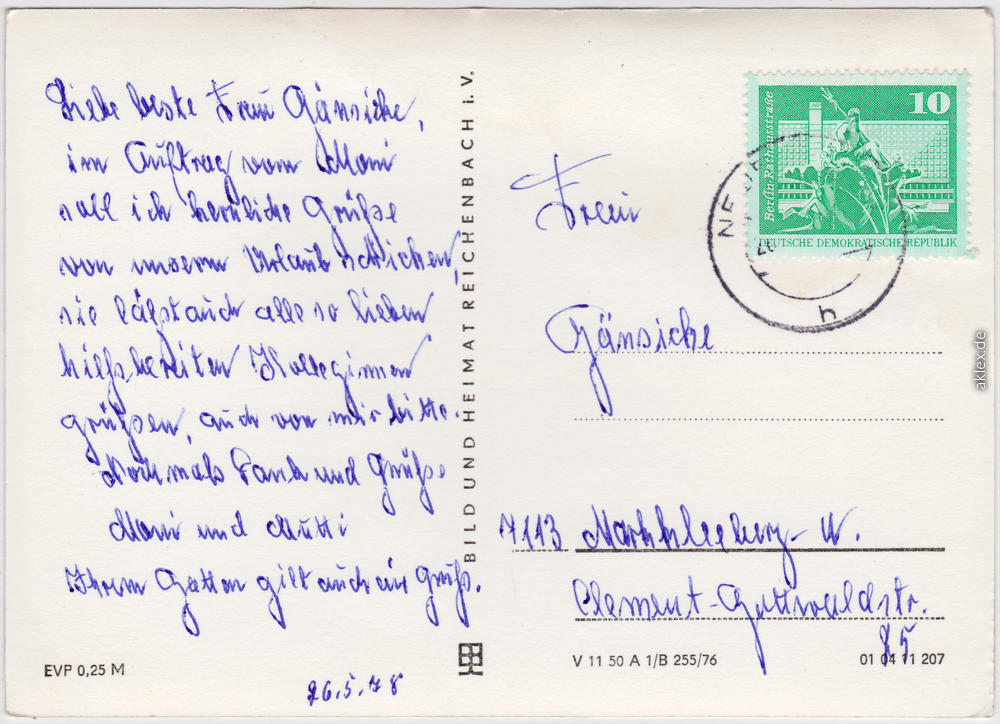 Liebe beste Frau Gänsicke,
im Auftrag von Moni
soll ich herzliche Grüße
von unserm Urlaub schicken,
sie läßt auch alle so lieben
hilfsbereiten Kolleginnen
grüßen, auch von mir bitte.
Nochmals Dank und Grüße
Moni und Mutti
Ihrem Gatten gilt auch ein Gruß.
EVP 0,25 M
26.5.78
BILD UND HEIMAT REICHENBACH i. V.
10
Berlin-Rathausstraße
DEUTSCHE DEMOKRATISCHE REPUBLIK
h
Frau
Gänsicke
7113 Markkleeberg-W.
Clement-Gottwaldstr.
85
V 11 50 A 1/B 255/76
01 04 11 207
aklex.de